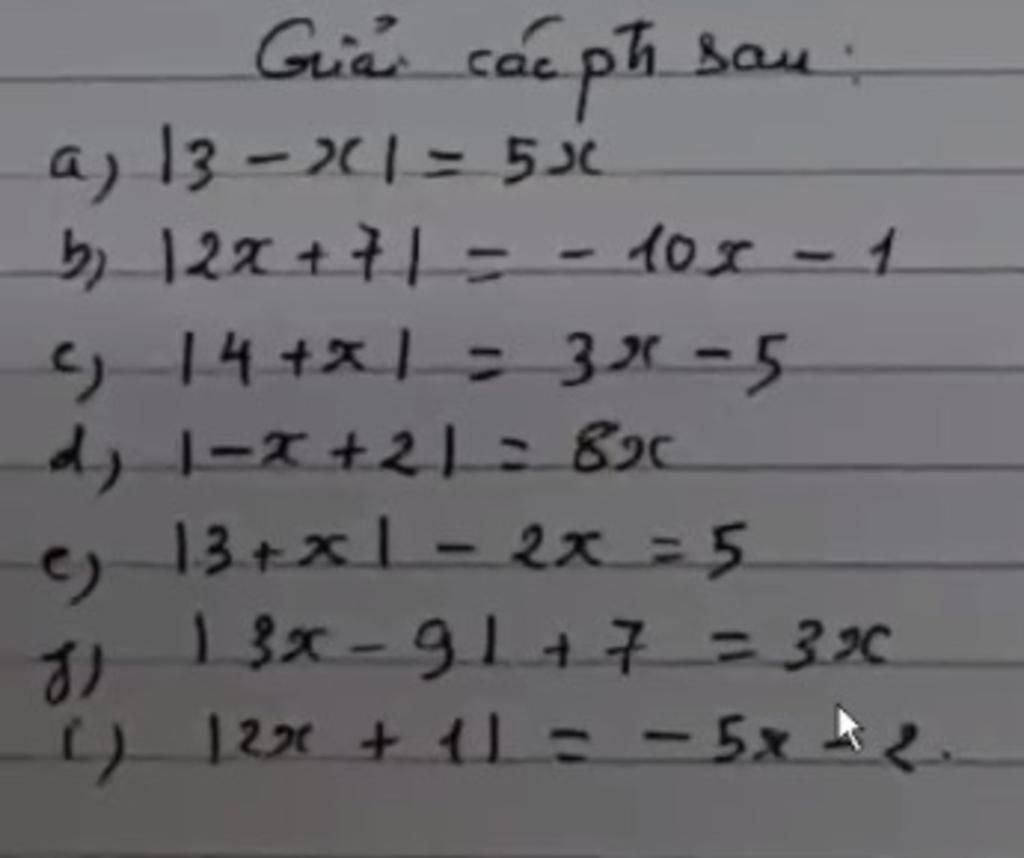 Giải các pt sau:
a) |3 - x| = 5x
b) |2x + 7| = - 10x - 1
c) |4 + x| = 3x - 5
d) |-x + 2| = 8x
e) |3 + x| - 2x = 5
f) |3x - 9| + 7 = 3x
i) |2x + 1| = - 5x - 2.